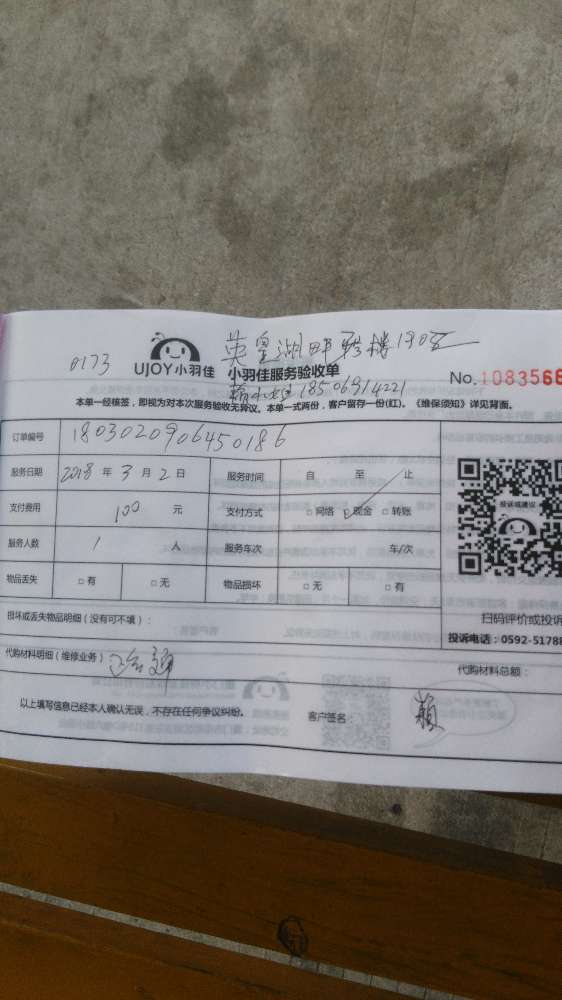 0173
UJOY小羽佳
小羽佳服务验收单
No.1083566
18506914221
本单一经核签，即视为对本次服务验收无异议。本单一式两份，客户留存一份(红)。《维保须知》详见背面。
订单编号 1803020906450186
服务日期 2018 年 3 月 2 日 服务时间 自 至 止
支付费用 100 元 支付方式 □网络 □现金 □转账
服务人数 1 人 服务车次 车/次
物品丢失 □有 □无 物品损坏 □无 □有
投诉或建议
扫码评价或投诉
投诉电话：0592-51788
损坏或丢失物品明细（没有可不填）：
代购材料明细（维修业务） 代购材料总额：
以上填写信息已经本人确认无误，不存在任何争议纠纷。 客户签名：